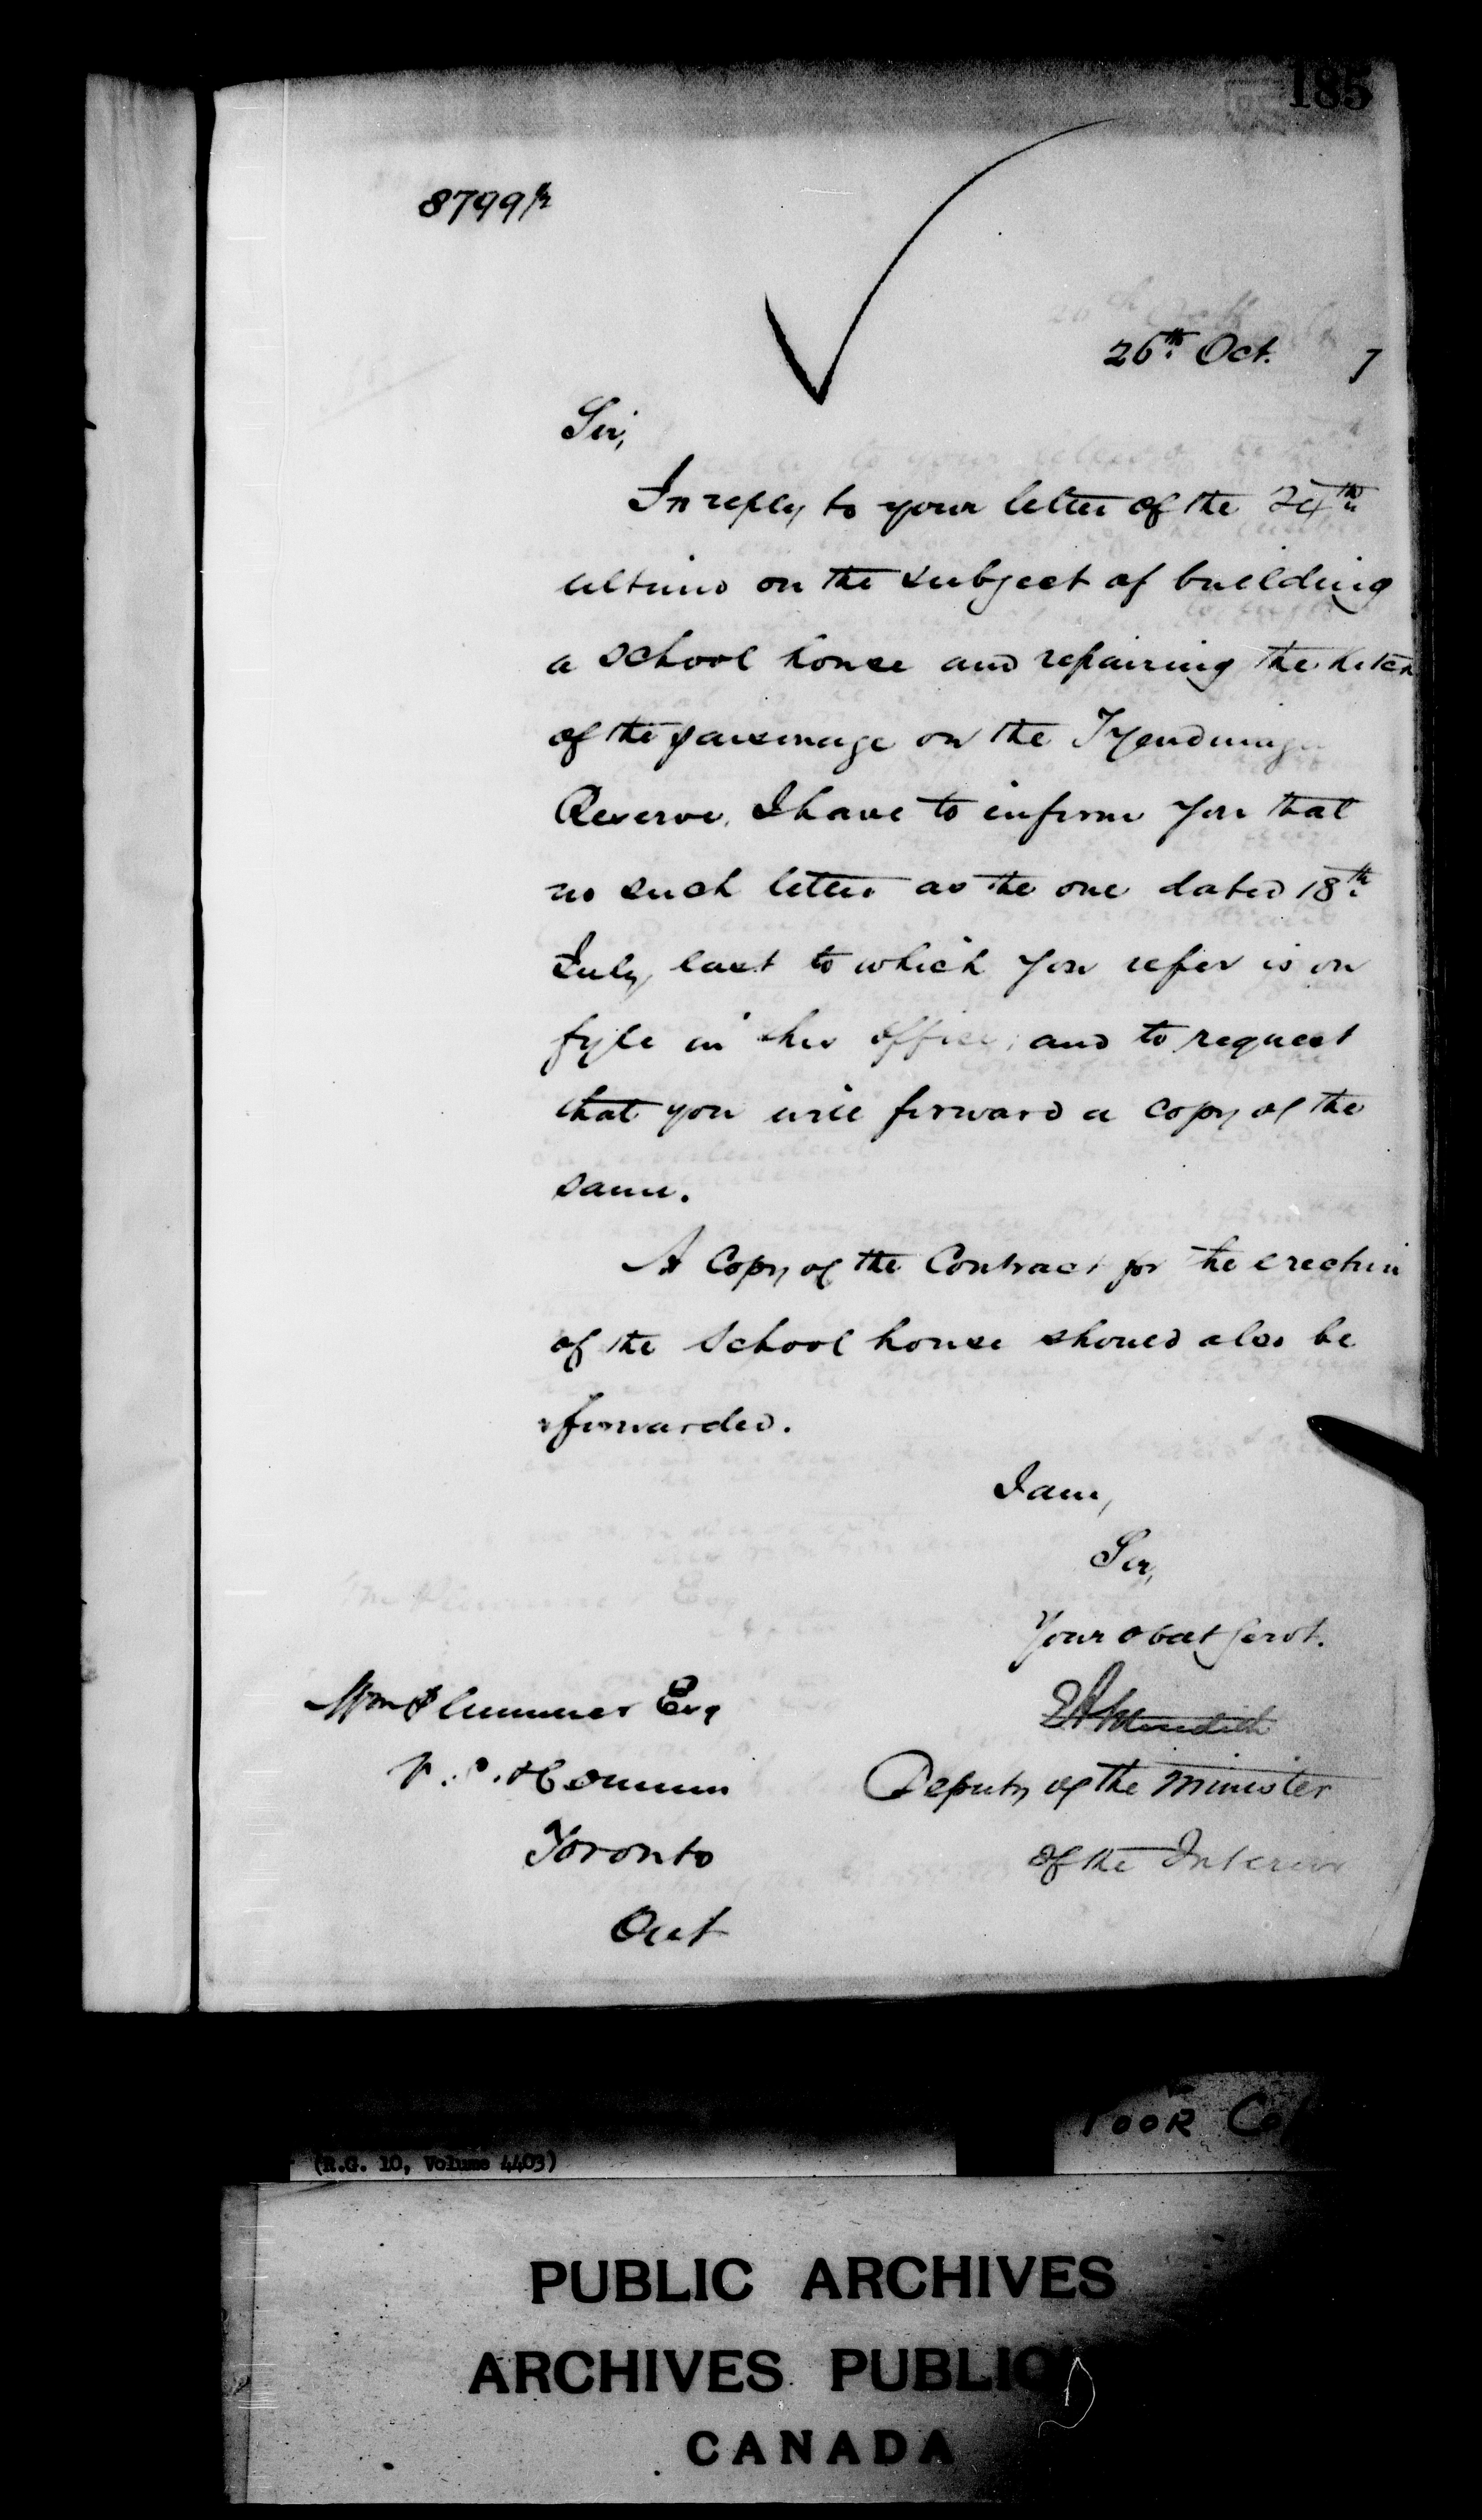 185
8799/2
26th Oct. 7
Sir,
In reply to your letter of the 24th
ultimo on the subject of building
a school house and repairing the kitch
of the parsonage on the Tyendinaga
Reserve, I have to inform you that
no such letter as the one dated 18th
July last to which you refer is on
fyle in this office, and to request
that you will forward a copy of the
same.
A Copy of the Contract for the erection
of the School house should also be
forwarded.
I am,
Sir,
Your obdt servt.
EAMeredith
Deputy of the Minister
of the Interior
Wm Plummer Esq
Toronto
Ont
POOR Co
(R.G. 10, Volume 4403)
PUBLIC ARCHIVES
ARCHIVES PUBLIQ
CANADA